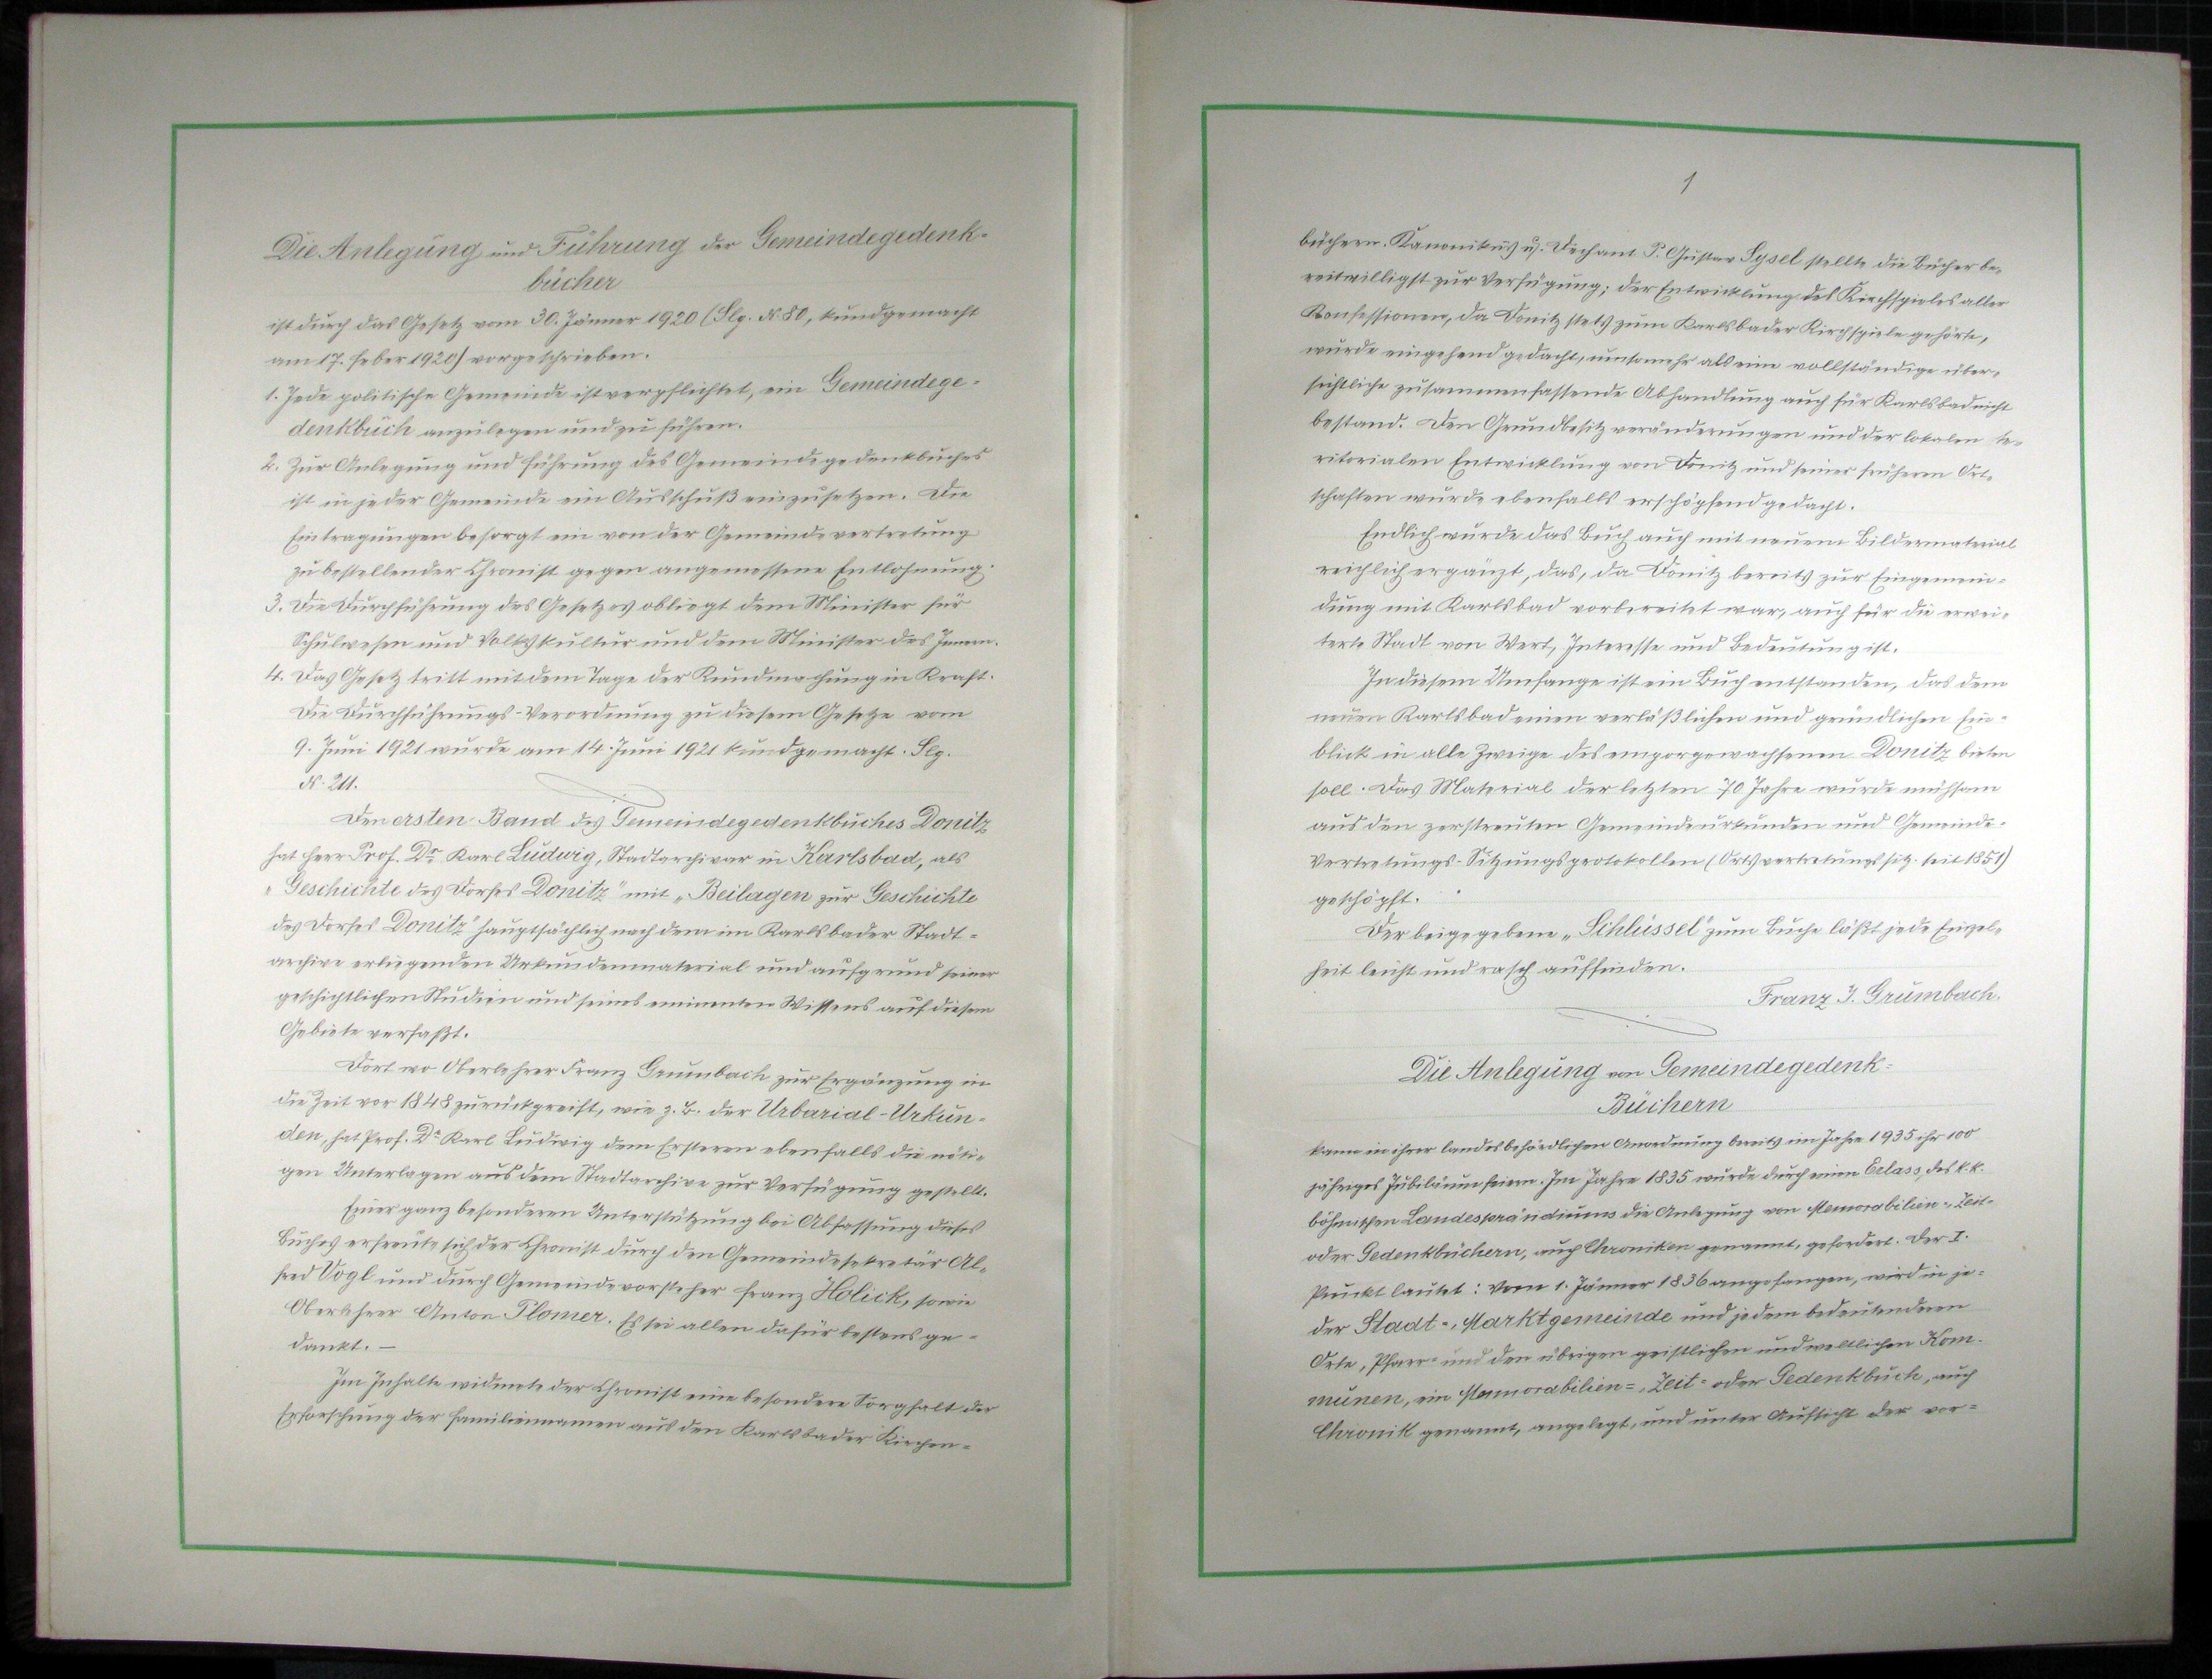 Die Anlegung und Führung der Gemeindegedenk-
bücher
ist durch das Gesetz vom 30. Jänner 1920 (Slg. N. 80, kundgemacht
am 17. Feber 1920) vorgeschrieben.
1. Jede politische Gemeinde ist verpflichtet, ein Gemeindege-
denkbuch anzulegen und zu führen.
2. Zur Anlegung und Führung des Gemeindegedenkbuches
ist in jeder Gemeinde ein Ausschuß einzusetzen. Die
Eintragungen besorgt ein von der Gemeindevertretung
zu bestellender Chronist gegen angemessene Entlohnung.
3. Die Durchführung des Gesetzes obliegt dem Minister für
Schulwesen und Volkskultur und dem Minister des Innern.
4. Das Gesetz tritt mit dem Tage der Kundmachung in Kraft.
Die Durchführungs-Verordnung zu diesem Gesetze vom
9. Juni 1921 wurde am 14. Juni 1921 kundgemacht. Slg.
N. 211.
Den ersten Band des Gemeindegedenkbuches Donitz
hat Herr Prof. Dr. Karl Ludwig, Stadtarchivar in Karlsbad, als
„Geschichte des Dorfes Donitz" mit „Beilagen zur Geschichte
des Dorfes Donitz" hauptsächlich nach dem im Karlsbader Stadt-
archive erliegenden Urkundenmaterial und aufgrund seiner
geschichtlichen Studien und seines eminenten Wissens auf diesem
Gebiete verfaßt.
Dort wo Oberlehrer Franz Grumbach zur Ergänzung in
die Zeit vor 1848 zurückgreift, wie z. B. der Urbarial-Urkun-
den, hat Prof. Dr. Karl Ludwig dem Ersteren ebenfalls die nöti-
gen Unterlagen aus dem Stadtarchive zur Verfügung gestellt.
Einer ganz besonderen Unterstützung bei Abfassung dieses
Buches erfreute sich der Chronist durch den Gemeindesekretär Al-
fred Vogl und durch Gemeindevorsteher Franz Holick, sowie
Oberlehrer Anton Plomer. Es sei allen dafür bestens ge-
dankt. —
Im Inhalte widmete der Chronist eine besondere Sorgfalt der
Erforschung der Familiennamen aus den Karlsbader Kirchen-
1
büchern. Kanonikus u. Dechant P. Gustav Sysel stellte die Bücher be-
reitwilligst zur Verfügung; der Entwicklung des Kirchspieles aller
Konfessionen, da Donitz stets zum Karlsbader Kirchspiele gehörte,
wurde eingehend gedacht, umsomehr als eine vollständige über-
sichtliche zusammenfassende Abhandlung auch für Karlsbad nicht
bestand. Den Grundbesitzveränderungen und der lokalen te-
ritorialen Entwicklung von Donitz und seiner früheren Ort-
schaften wurde ebenfalls erschöpfend gedacht.
Endlich wurde das Buch auch mit neuem Bildermaterial
reichlich ergänzt, das, da Donitz bereits zur Eingemein-
dung mit Karlsbad vorbereitet war, auch für die erwei-
terte Stadt von Wert, Interesse und Bedeutung ist.
In diesem Umfange ist ein Buch entstanden, das dem
neuen Karlsbad einen verläßlichen und gründlichen Ein-
blick in alle Zweige des emporgewachsenen Donitz bieten
soll. Das Material der letzten 70 Jahre wurde mühsam
aus den zerstreuten Gemeindeurkunden und Gemeinde-
Vertretungs-Sitzungsprotokollen (Ortsvertretungssitz. seit 1851)
geschöpft.
Der beigegebene „Schlüssel" zum Buche läßt jede Einzel-
heit leicht und rasch auffinden.
Franz J. Grumbach.
Die Anlegung von Gemeindegedenk-
Büchern
kann in ihrer landesbehördlichen Anordnung bereits im Jahre 1935 ihr 100
jähriges Jubiläum feiern. Im Jahre 1835 wurde durch einen Erlass des k. k.
böhmischen Landespräsidiums die Anlegung von Memorabilien-, Zeit-
oder Gedenkbüchern, auch Chroniken genannt, gefordert. Der I.
Punkt lautet: Vom 1. Jänner 1836 angefangen, wird in je-
der Stadt-, Marktgemeinde und jedem bedeutenderen
Orte, Pfarr- und den übrigen geistlichen und weltlichen Kom-
munen, ein Memorabilien-, Zeit- oder Gedenkbuch, auch
Chronik genannt, angelegt, und unter Aufsicht der vor-